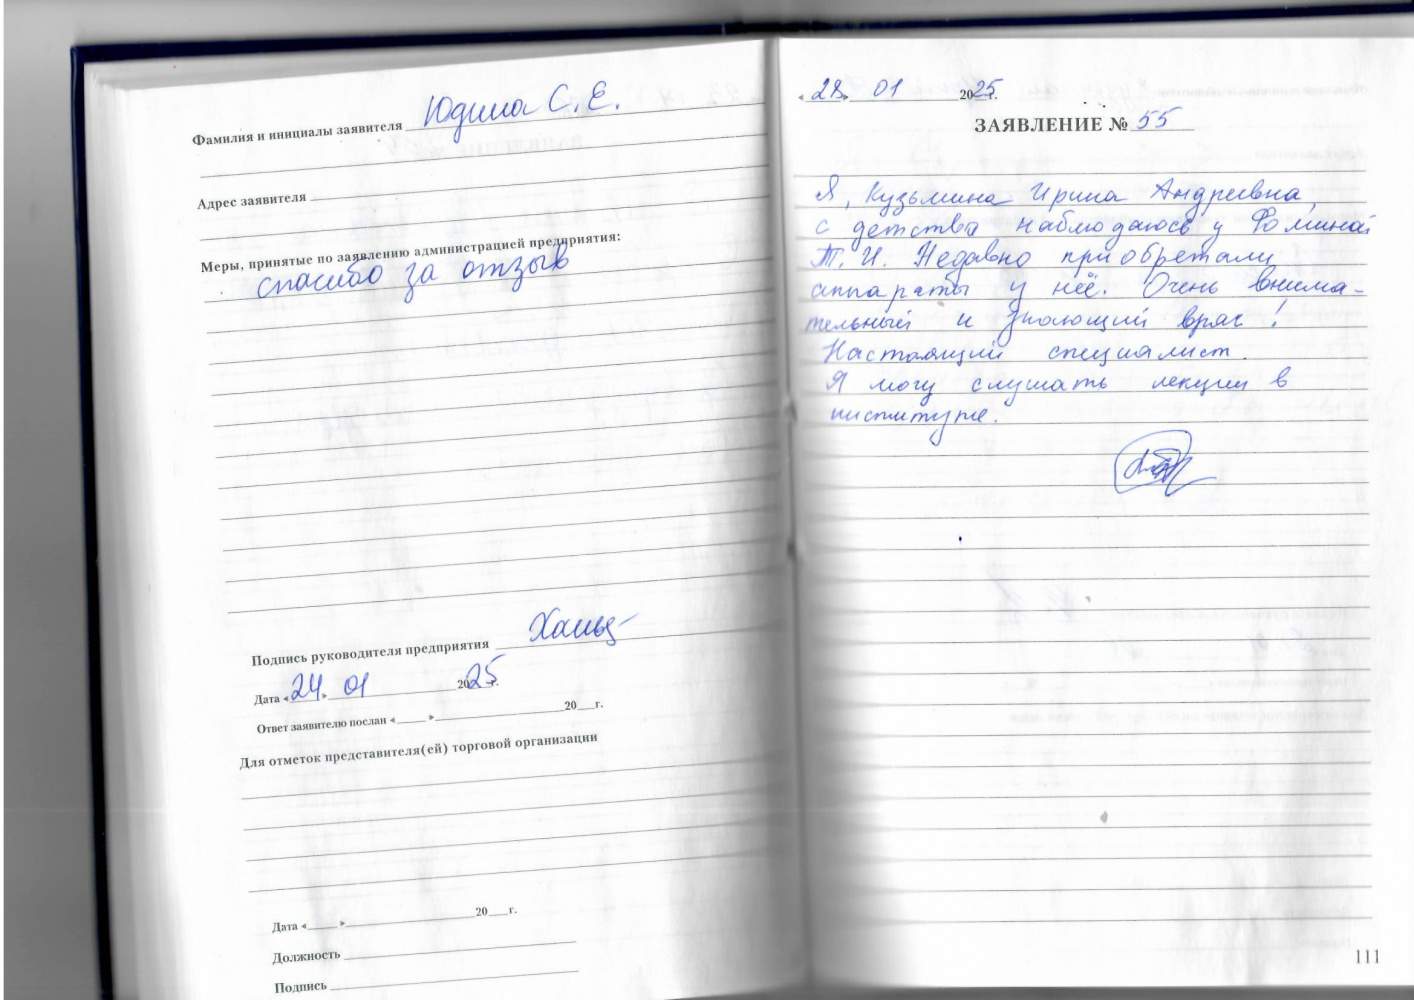 Фамилия и инициалы заявителя Юдина С. Е.
Адрес заявителя
Меры, принятые по заявлению администрацией предприятия:
спасибо за отзыв
Подпись руководителя предприятия
Дата «24» 01 2025г.
Ответ заявителю послан « » 20 г.
Для отметок представителя(ей) торговой организации
Дата « » 20 г.
Должность
Подпись
«28» 01 2025г.
ЗАЯВЛЕНИЕ № 55
Я, Кузьмина Ирина Андреевна,
с детства наблюдаюсь у Фоминой
Т. И. Недавно приобретали
аппараты у неё. Очень внима-
тельный и знающий врач!
Настоящий специалист.
Я могу слушать лекции в
институте.
111